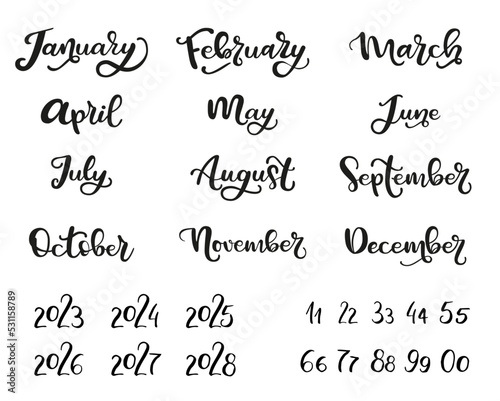 January February March
April May June
July August September
October November December
2023 2024 2025 11 22 33 44 55
2026 2027 2028 66 77 88 99 00
Adobe Stock | #531158789